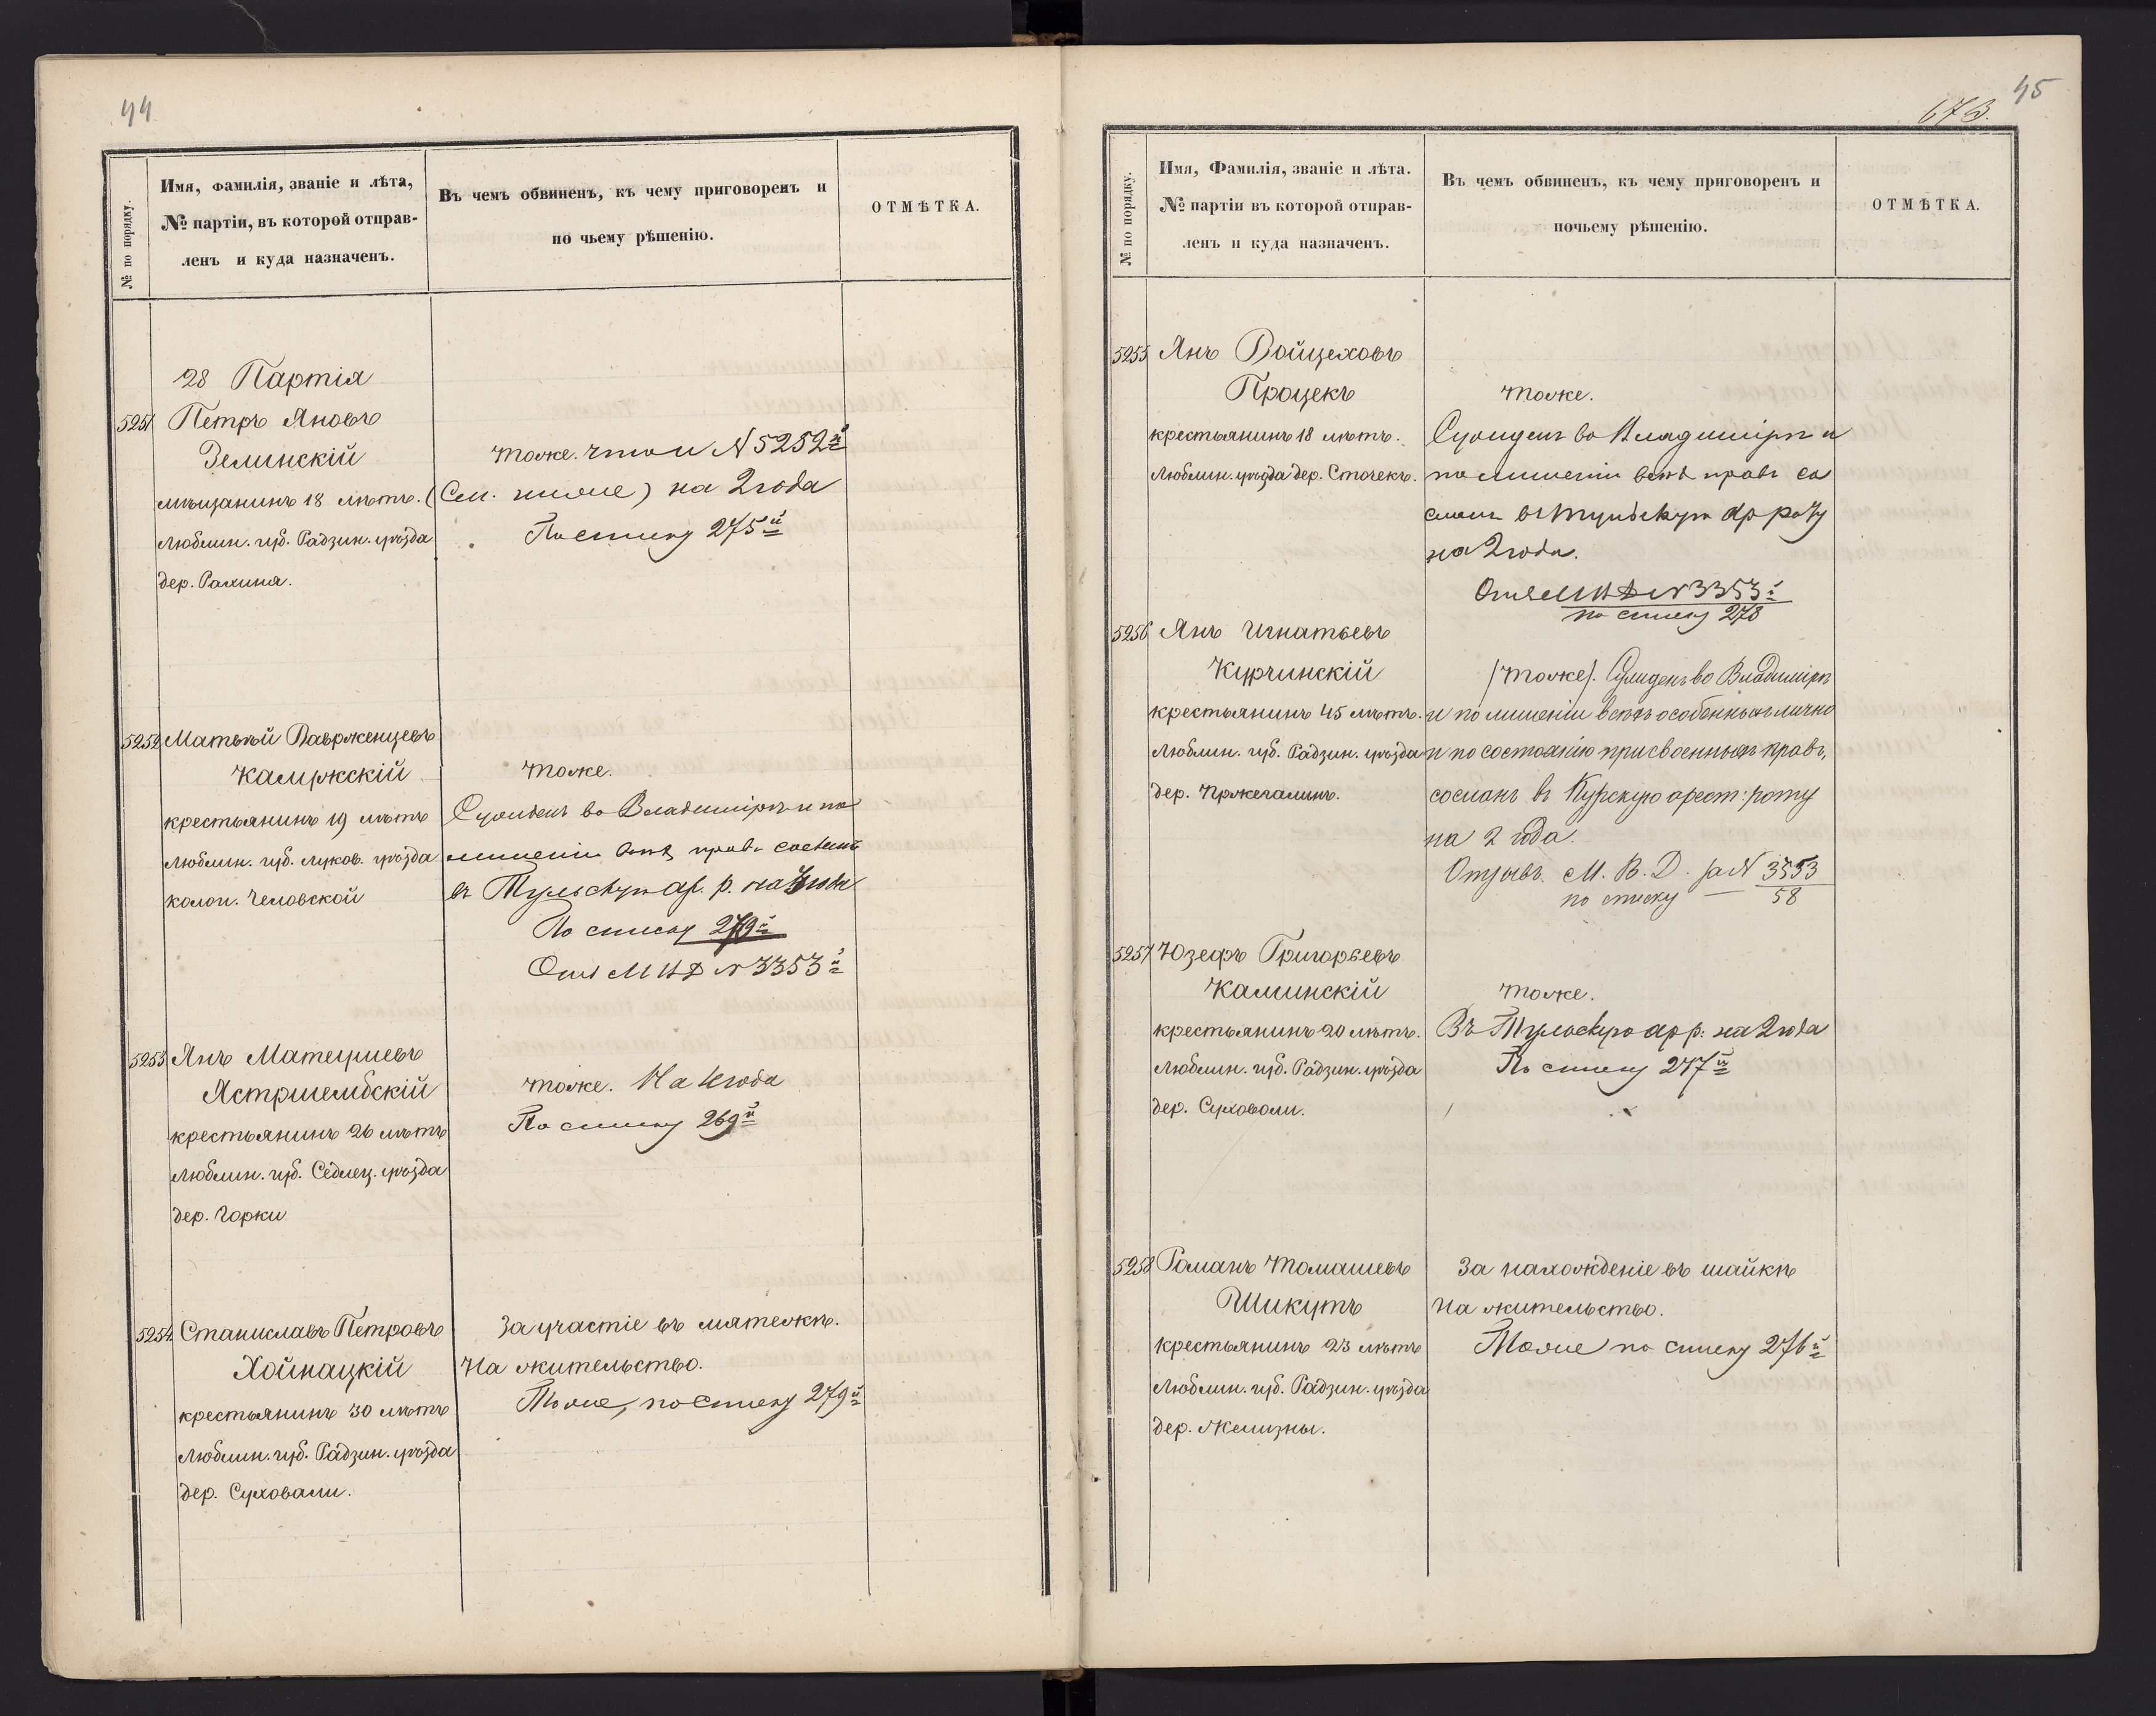 44
№ по порядку.
Имя, фамилія, званіе и лѣта,
№ партіи, въ которой отправ-
ленъ и куда назначенъ.
Въ чемъ обвиненъ, къ чему приговоренъ и
по чьему рѣшенію.
ОТМѢТКА.
28 Партія
5251 Петръ Яновъ
Зелинскій
мѣщанинъ 18 лѣтъ.
Люблин. губ. Радзин. уѣзда
дер.
тоже. что и N 5252й
(См. ниже) на 2 года
По списку 275й
5252 Матвѣй ВавРженцевъ
Камржскій
крестьянинъ 19 лѣтъ
Люблин. губ. Луков. уѣзда
колон. Человской
тоже.
Сужденъ во Владимірѣ и по
лишеніи всѣхъ правъ сосланъ
въ Тульскую ар. р. на года
По списку 279й
Отз МВД N 3353й
5253 Янъ Матеушевъ
Ястршембскій
крестьянинъ 26 лѣтъ
Люблин. губ. Седлец. уѣзда
дер. Горки
тоже. На 4 года
По списку 269й
5254 Станиславъ Петровъ
Хойнацкій
крестьянинъ 30 лѣтъ
Люблин. губ. Радзин. уѣзда
дер. Суховоли.
За участіе въ мятежѣ.
На жительство.
Тоже, по списку 279й
45
673.
№ по порядку.
Имя, Фамилія, званіе и лѣта.
№ партіи въ которой отправ-
ленъ и куда назначенъ.
Въ чемъ обвиненъ, къ чему приговоренъ и
почьему рѣшенію.
ОТМѢТКА.
5255 Янъ Войцеховъ
Процекъ
крестьянинъ 18 лѣтъ.
Люблин. уѣзда дер. Сточекъ.
тоже.
Сужденъ во Владимірѣ и
по лишеніи всѣхъ правъ со
сланъ въ Тульскую ар роту
на 2 года.
Отз МВД N 3353й
по списку 278
5256 Янъ Игнатьевъ
Курчинскій
крестьянинъ 45 лѣтъ.
Люблин. губ. Радзин. уѣзда
дер. Пржегалинъ.
(тоже). Сужденъ во Владимірѣ
и по лишеніи всѣхъ особенныхъ лично
и по состоянію присвоенныхъ правъ,
сосланъ въ Курскую арест: роту
на 2 года.
Отзывъ М. В. Д. за N 3353
по списку — 58
5257 Юзефъ Григорьевъ
Калинскій
крестьянинъ 20 лѣтъ.
Люблин. губ. Радзин. уѣзда
дер. Суховоли.
тоже.
Въ Тульскую ар р: на 2 года
По списку 277й
5258 Романъ Томашевъ
Шикутъ
крестьянинъ 23 лѣтъ
Люблин. губ. Радзин. уѣзда
дер. Желизны.
За нахожденіе въ шайкѣ
На жительство.
Тоже по списку 276й